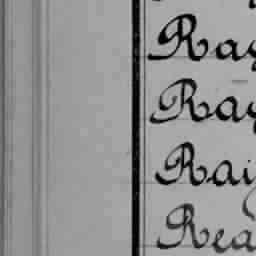 Ray
Ray
Rai
Rea